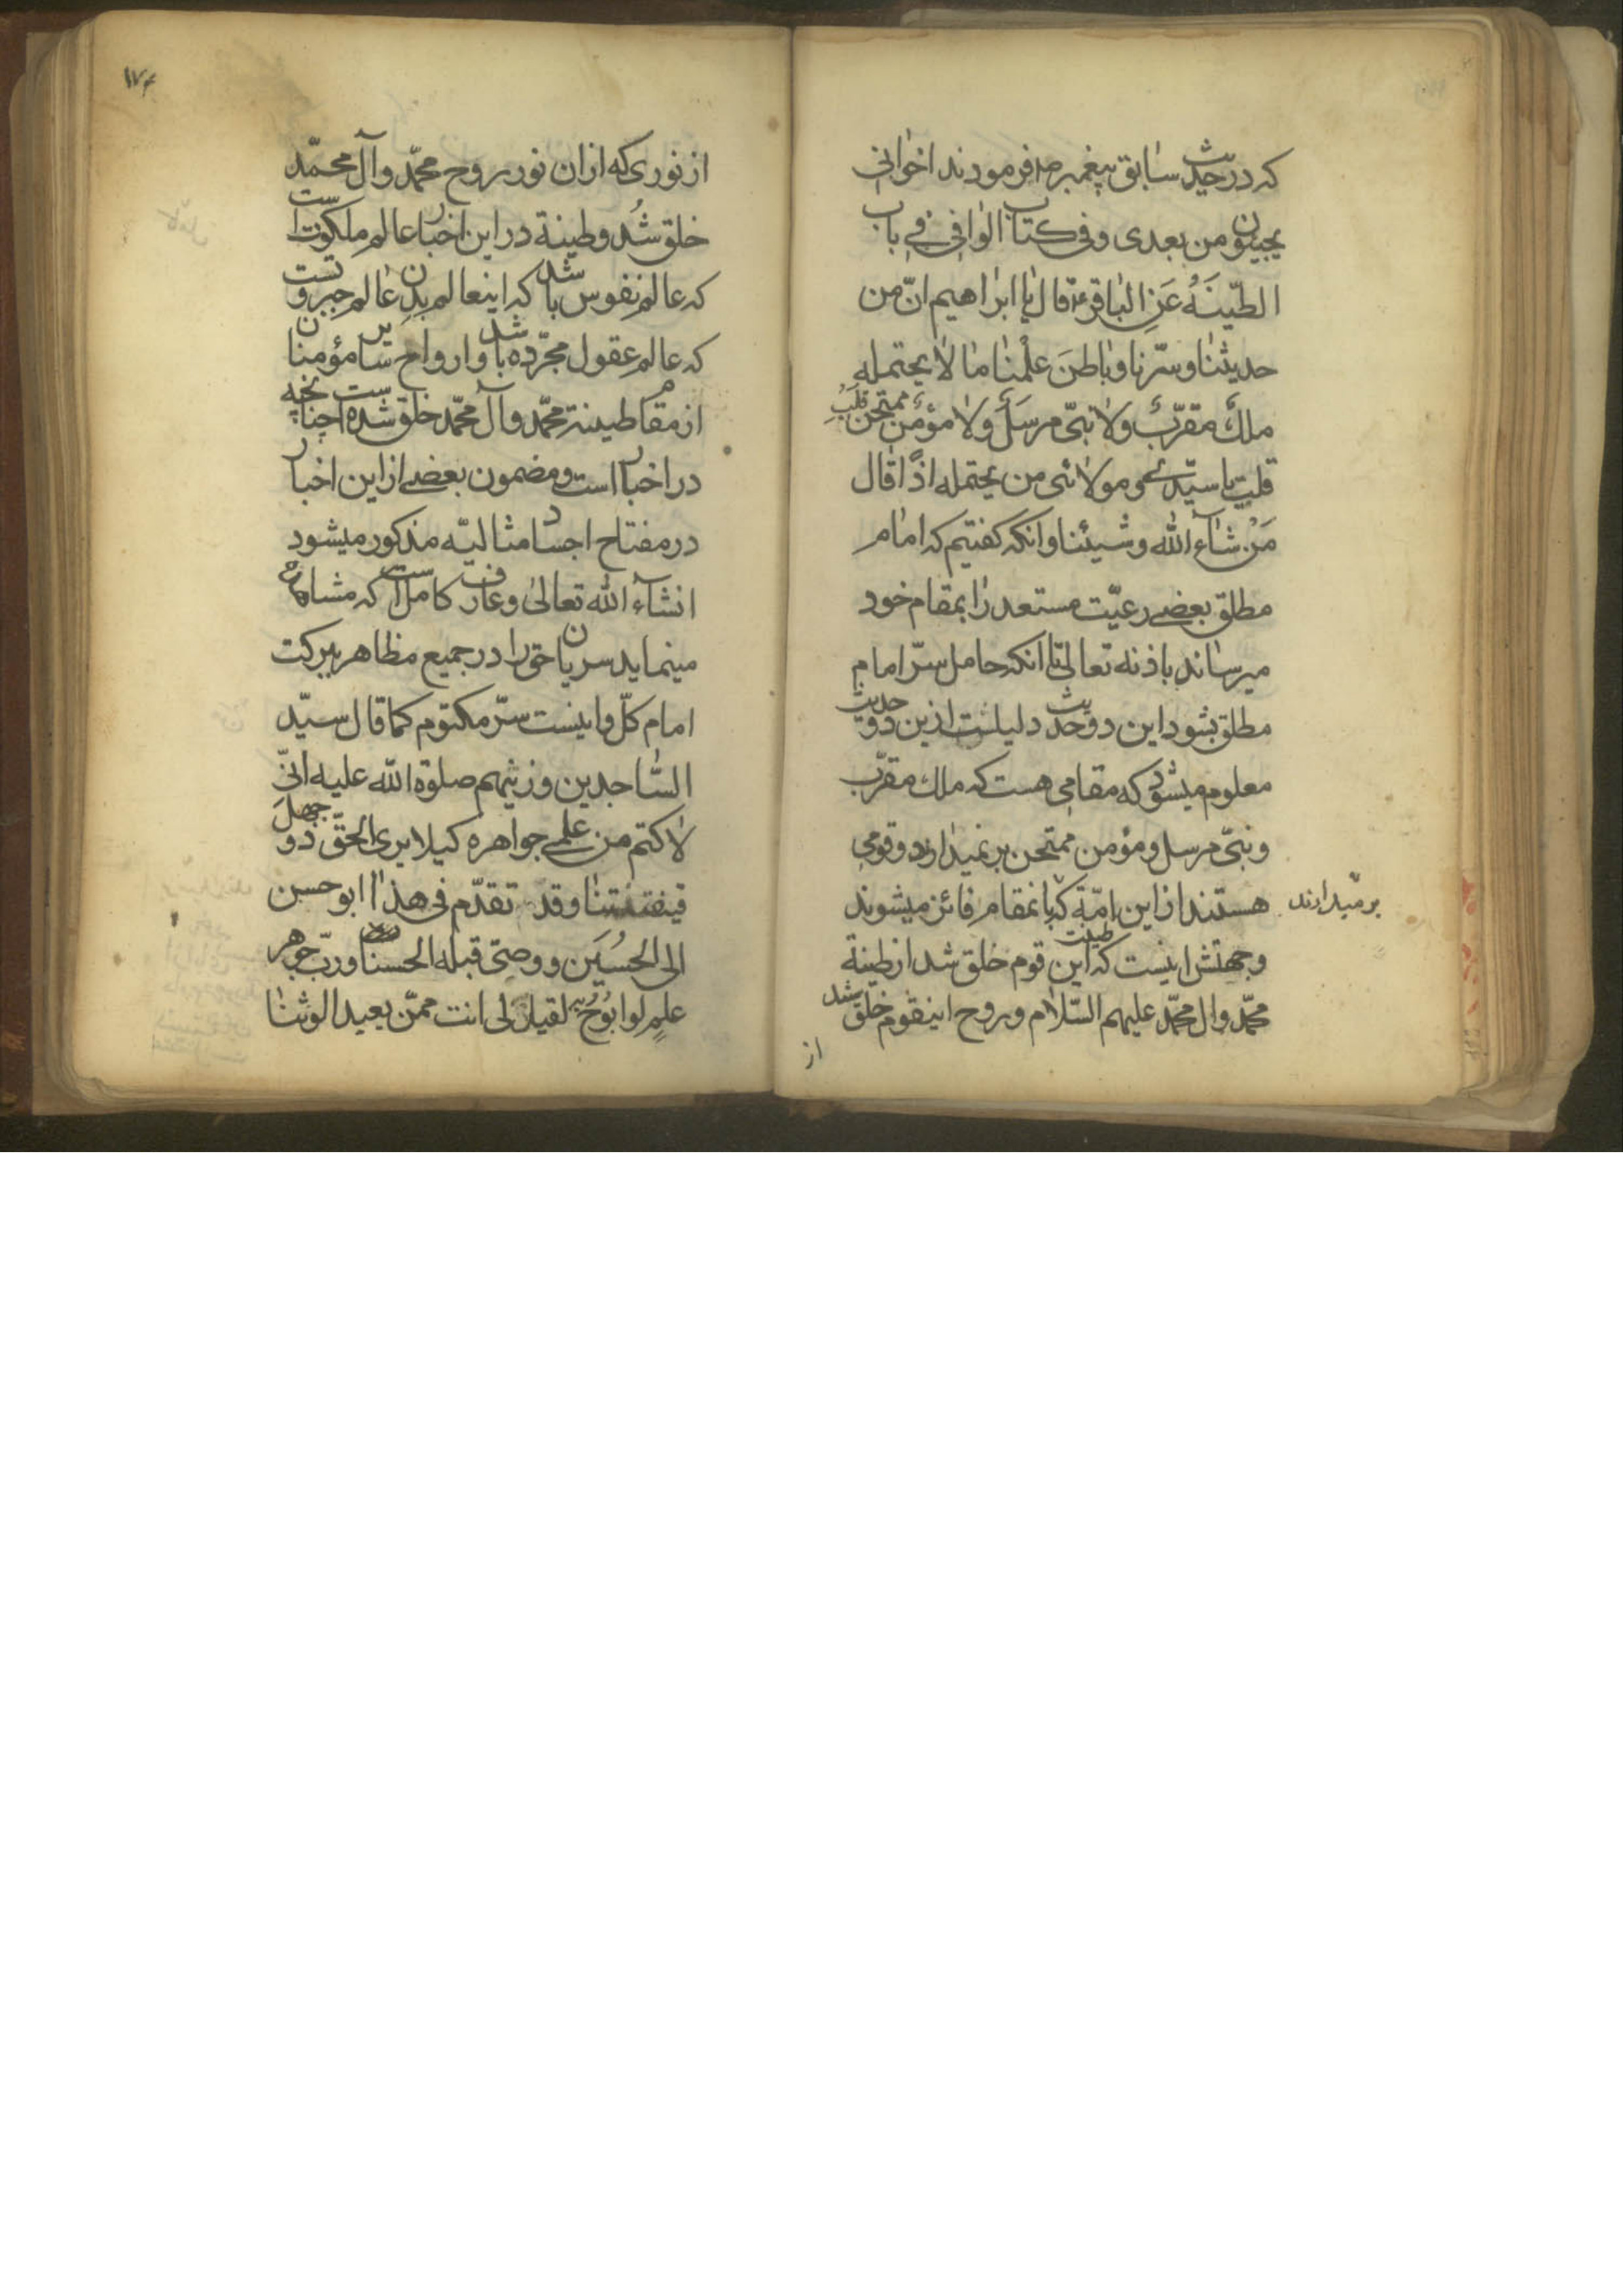 که در حدیث سابق پیغمبر ص فرمودند اخوانی
یجیئون من بعدی و فی کتاب الوافی فے باب
الطّینَهُ عَنِ الباقرع قال یا ابراهیم انّ من
حدیثنا و سرّنا و باطنَ علْمنا ما لا یحتمله
ملكٌ مقرّبٌ ولا نبّی مرسَل ولا مؤمن ممتحن قلبُ
قلت یا سیّدی و مولائی من یحتمله اذًا قال
مَنْ شاء الله و شیئنا و انکه گفتیم که امام
مطلق بعضے رعیّت مستعد را بمقام خود
میرساند باذنه تعالی تا انکه حامل سرّ امام
مطلق بشود این دو حدیث دلیلست ازین دو حدیث
معلوم میشود که مقامی هست که ملك مقرّب
و نبّی مرسل و مؤمن ممتحن بر نمیدارد و قومی
هستند از این امّة که بانمقام فائز میشوند
بر میدارند
و جهتش اینست که طینت این قوم خلق شد از طینة
محمّد وال محمّد علیهم السّلام و روح اینقوم خلق شد
از
۱۷۴
از نوری که از ان نور روح محمّد وآل محمّد
خلق شُد و طینة در این اخبار عالم ملکوتست
که عالم نفوس باشد که اینعالم بدن عالم جبروتست
که عالم عقول مجرّده باشد و ارواح سایر مؤمنان
از مقام طینة محمّد وآل محمّد خلق شده است چنانچه
در اخبار است و مضمون بعضے از این اخبار
در مفتاح اجساد مثالیّه مذکور میشود
انشآء الله تعالیٰ و عارف کامل است که مشاهده
مینماید سریان حق را در جمیع مظاهر ببرکت
امام کلّ و اینست سرّ مکتوم کما قال سیّد
السّاجدین و زینهم صلوة الله علیه انّی
لاکتم من علمے جواهره کیلا یری الحقّ ذو جهلَ
فیفتتننا وقد تقدّم فی هذا ابو حسن
الی الحُسَین و وصّی قبله الحسنا و ربّ جوهر
علمٍ لو ابوُحُ به لقیل لی انت ممّن یعبد الوثنا